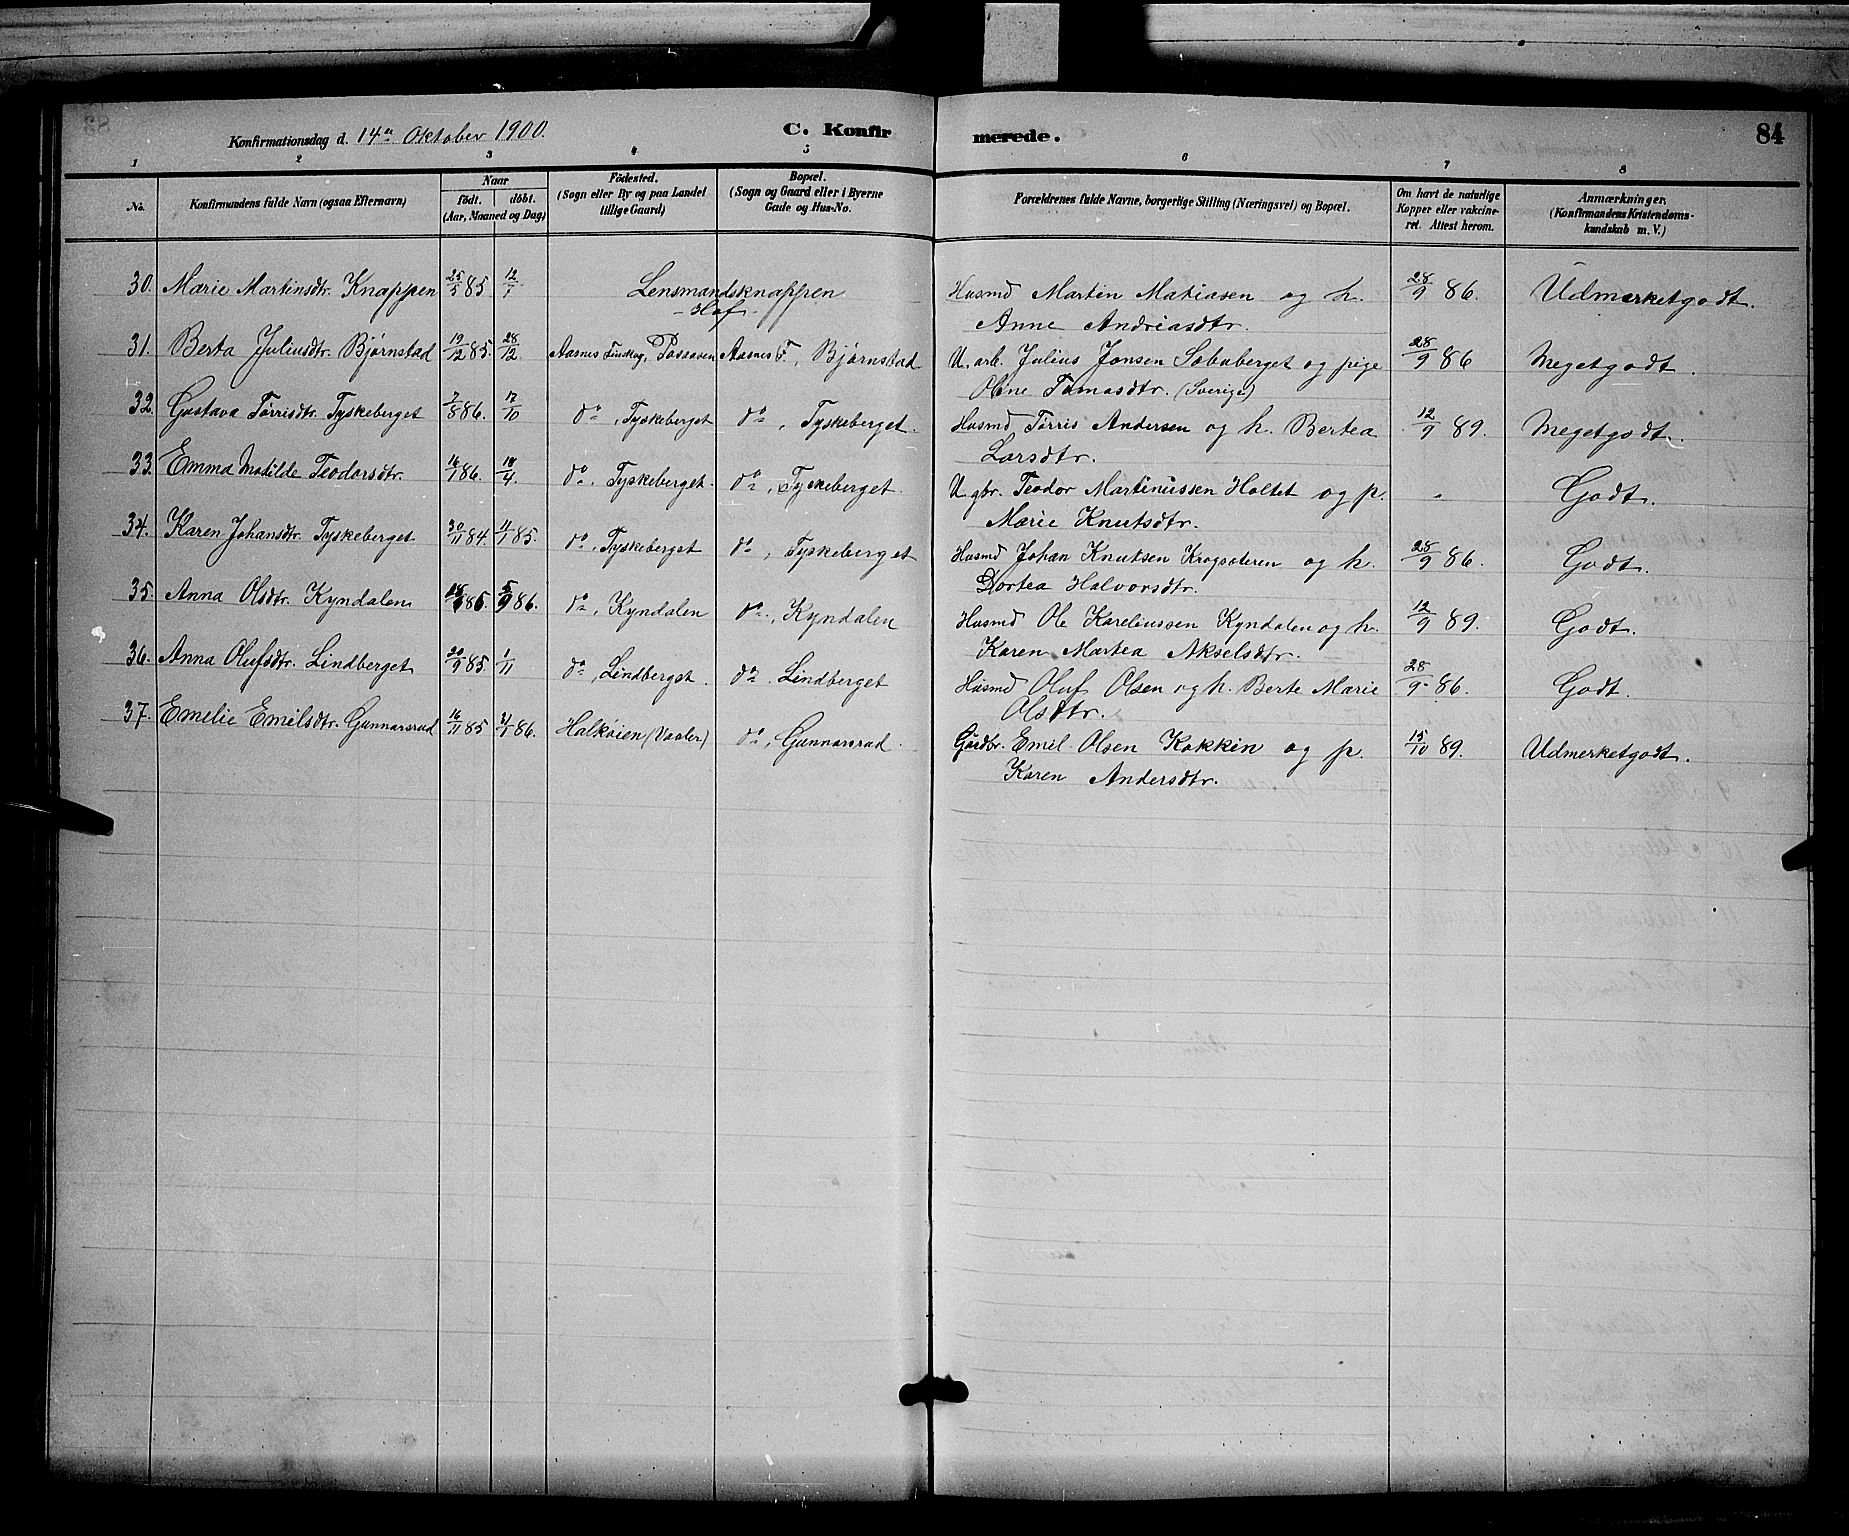 Konfirmationsdag d. 14de Oktober 1900.
C. Konfirmerede.
84
1 2 3 4 5 6 7 8
No.
Konfirmandens fulde Navn (ogsaa Efternavn)
Naar
født. døbt.
(Aar, Maaned og Dag)
Fødested.
(Sogn eller By og paa Landet
tillige Gaard)
Bopæl.
(Sogn og Gaard eller i Byerne
Gade og Hus-No.
Forældrenes fulde Navne, borgerlige Stilling (Næringsvei) og Bopæl.
Om havt de naturlige
Kopper eller vakcine-
ret. Attest herom.
Anmærkninger.
(Konfirmandens Kristendoms-
kundskab m. V.)
30. Marie Martinsdtr. Knappen 25/5 85. 12/7 Lensmandsknappen Husmd Martin Matiasen og h. 28/9 86. Udmerketgodt.
- Hof - Anne Andriasdtr.
31. Berta Juliusdtr. Bjørnstad 19/12 85. 28/12. Aasnes Finskog, Possaasen Aasnes F., Bjørnstad U. arb. Julius Jonsen Sobaberget og pige 28/9 86 Megetgodt.
Oline Tomasdtr. (Sverige)
32. Gustava Tørrisdtr. Tyskeberget 7/8 86. 17/10 do, Tyskeberget do, Tyskeberget. Husmd Tørris Andersen og h. Bertea 12/9 89. Megetgodt.
Larsdtr.
33. Emma Matilde Teodorsdtr. 16/1 86. 18/4. do, Tyskeberget. do, Tyskeberget. U. gbr. Teodor Martinussen Holtet og p. - Godt.
Marie Knutsdtr.
34. Karen Johansdtr. Tyskeberget 30/11 84. 11/1 85. do, Tyskeberget do, Tyskeberget Husmd Johan Knutsen Krogsæteren og h. 28/9 86. Godt.
Dortea Halvorsdtr.
35. Anna Olsdtr. Kyndalen 85. 5/9 86. do, Kyndalen do, Kyndalen Husmd Ole Kareliussen Kyndalen og h. 12/9 89. Godt.
Karen Martea Akselsdtr.
36. Anna Olufsdtr. Lindberget 20/9 85. 1/11 do, Lindberget. do, Lindberget Husmd Oluf Olsen og h. Berte Marie 28/9 86. Godt.
Olsdtr.
37. Emelie Emilsdtr. Gunnarsrud 16/11 85 31/1 86. Halkøien (Vaaler) do, Gunnarsrud. Gaardbr. Emil Olsen Kokkin og p. 15/10 89. Udmerketgodt.
Karen Andersdtr.